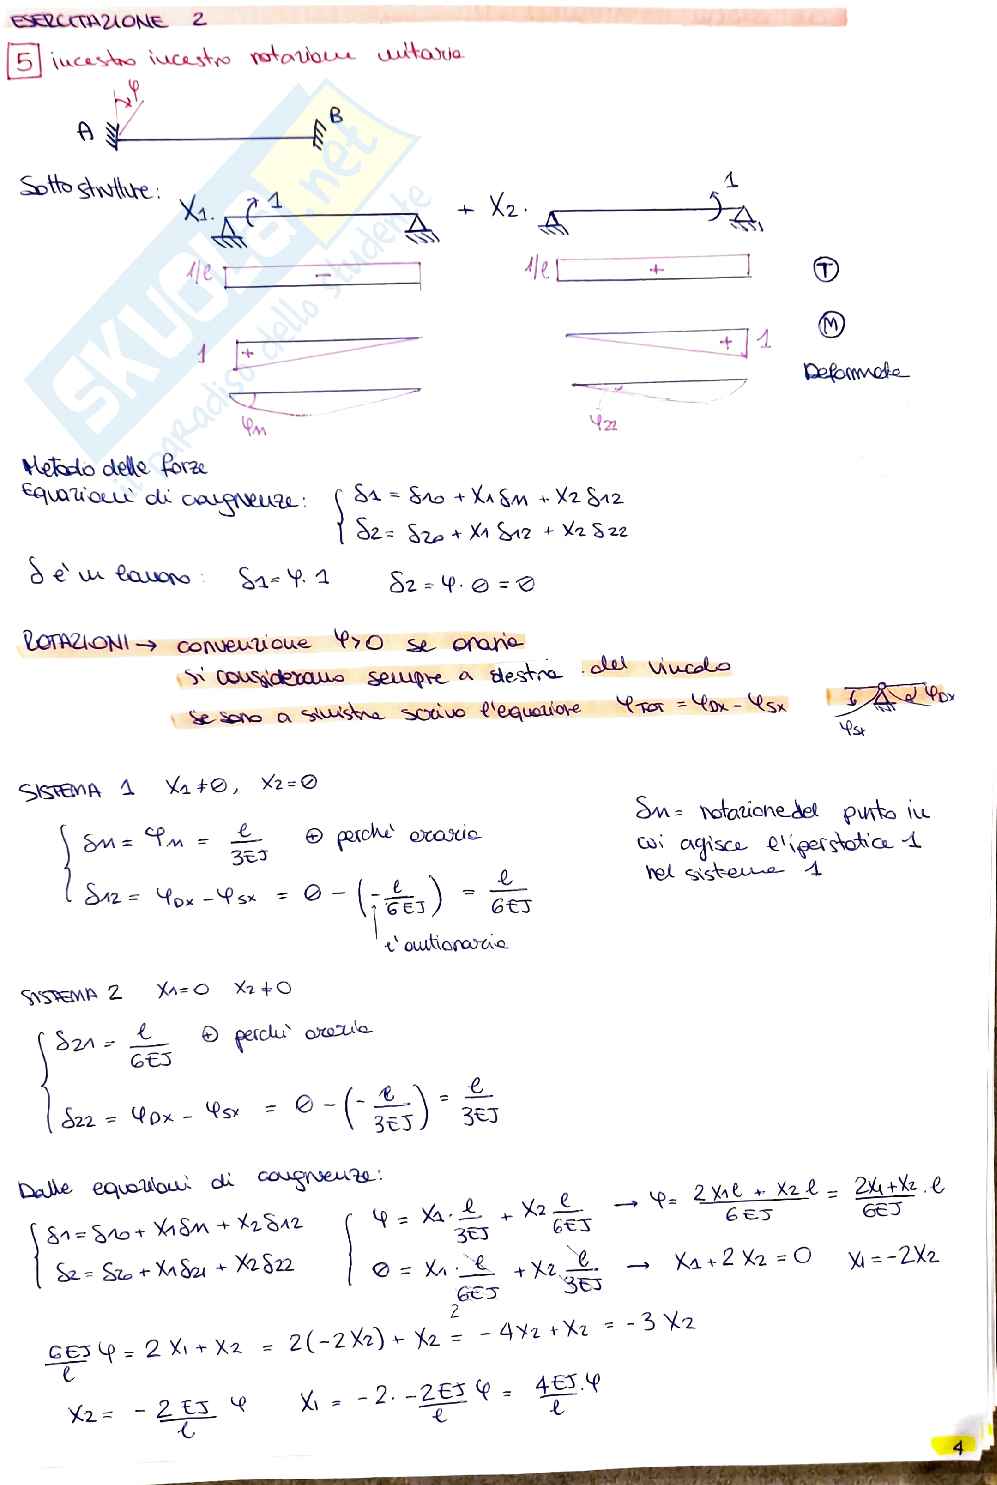 ESERCITAZIONE 2
5 incastro incastro rotazione unitaria
φ
A B
Sottostrutture: X1. 1 + X2. 1
1/l − 1/l + T
1 + + 1 M
Deformata
φ11 φ22
Metodo delle forze
Equazioni di congruenza: δ1 = δ10 + X1 δ11 + X2 δ12
δ2 = δ20 + X1 δ12 + X2 δ22
δ è un lavoro: δ1 = φ · 1 δ2 = φ · 0 = 0
ROTAZIONI → convenzione φ>0 se oraria
si considerano sempre a destra del vincolo
se sono a sinistra scrivo l'equazione φTOT = φDX − φSX
φDX
φSX
SISTEMA 1 X1 ≠ 0, X2 = 0
δ11 = φ11 = l/3EJ ⊕ perché oraria
δ12 = φDX − φSX = 0 − (− l/6EJ) = l/6EJ
è antioraria
δ11 = rotazione del punto in
cui agisce l'iperstatica 1
nel sistema 1
SISTEMA 2 X1 = 0 X2 ≠ 0
δ21 = l/6EJ ⊕ perché oraria
δ22 = φDX − φSX = 0 − (− l/3EJ) = l/3EJ
Dalle equazioni di congruenza:
δ1 = δ10 + X1 δ11 + X2 δ12 φ = X1 · l/3EJ + X2 l/6EJ → φ = 2X1l + X2l/6EJ = 2X1 + X2/6EJ · l
δ2 = δ20 + X1 δ21 + X2 δ22 0 = X1 · l/6EJ + X2 · l/3EJ → X1 + 2X2 = 0 X1 = −2X2
2
6EJ/l φ = 2X1 + X2 = 2(−2X2) + X2 = −4X2 + X2 = −3X2
X2 = − 2EJ/l φ X1 = −2 · −2EJ/l φ = 4EJ/l · φ
4
SKUOLA.net
il paradiso dello studente